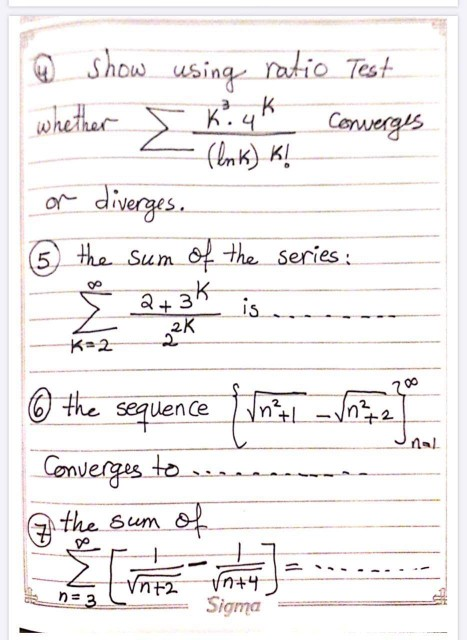 ④ Show using ratio Test
whether ∑ K³. 4^K / (lnK) K! Converges
or diverges.
⑤ the sum of the series:
∑_{K=2}^{∞} (2+3^K) / 2^{2K} is ........
⑥ the sequence {√(n²+1) - √(n²+2)}_{n=1}^{∞}
Converges to ............
⑦ the sum of
∑_{n=3}^{∞} [1/√(n+2) - 1/√(n+4)] = ........
Sigma